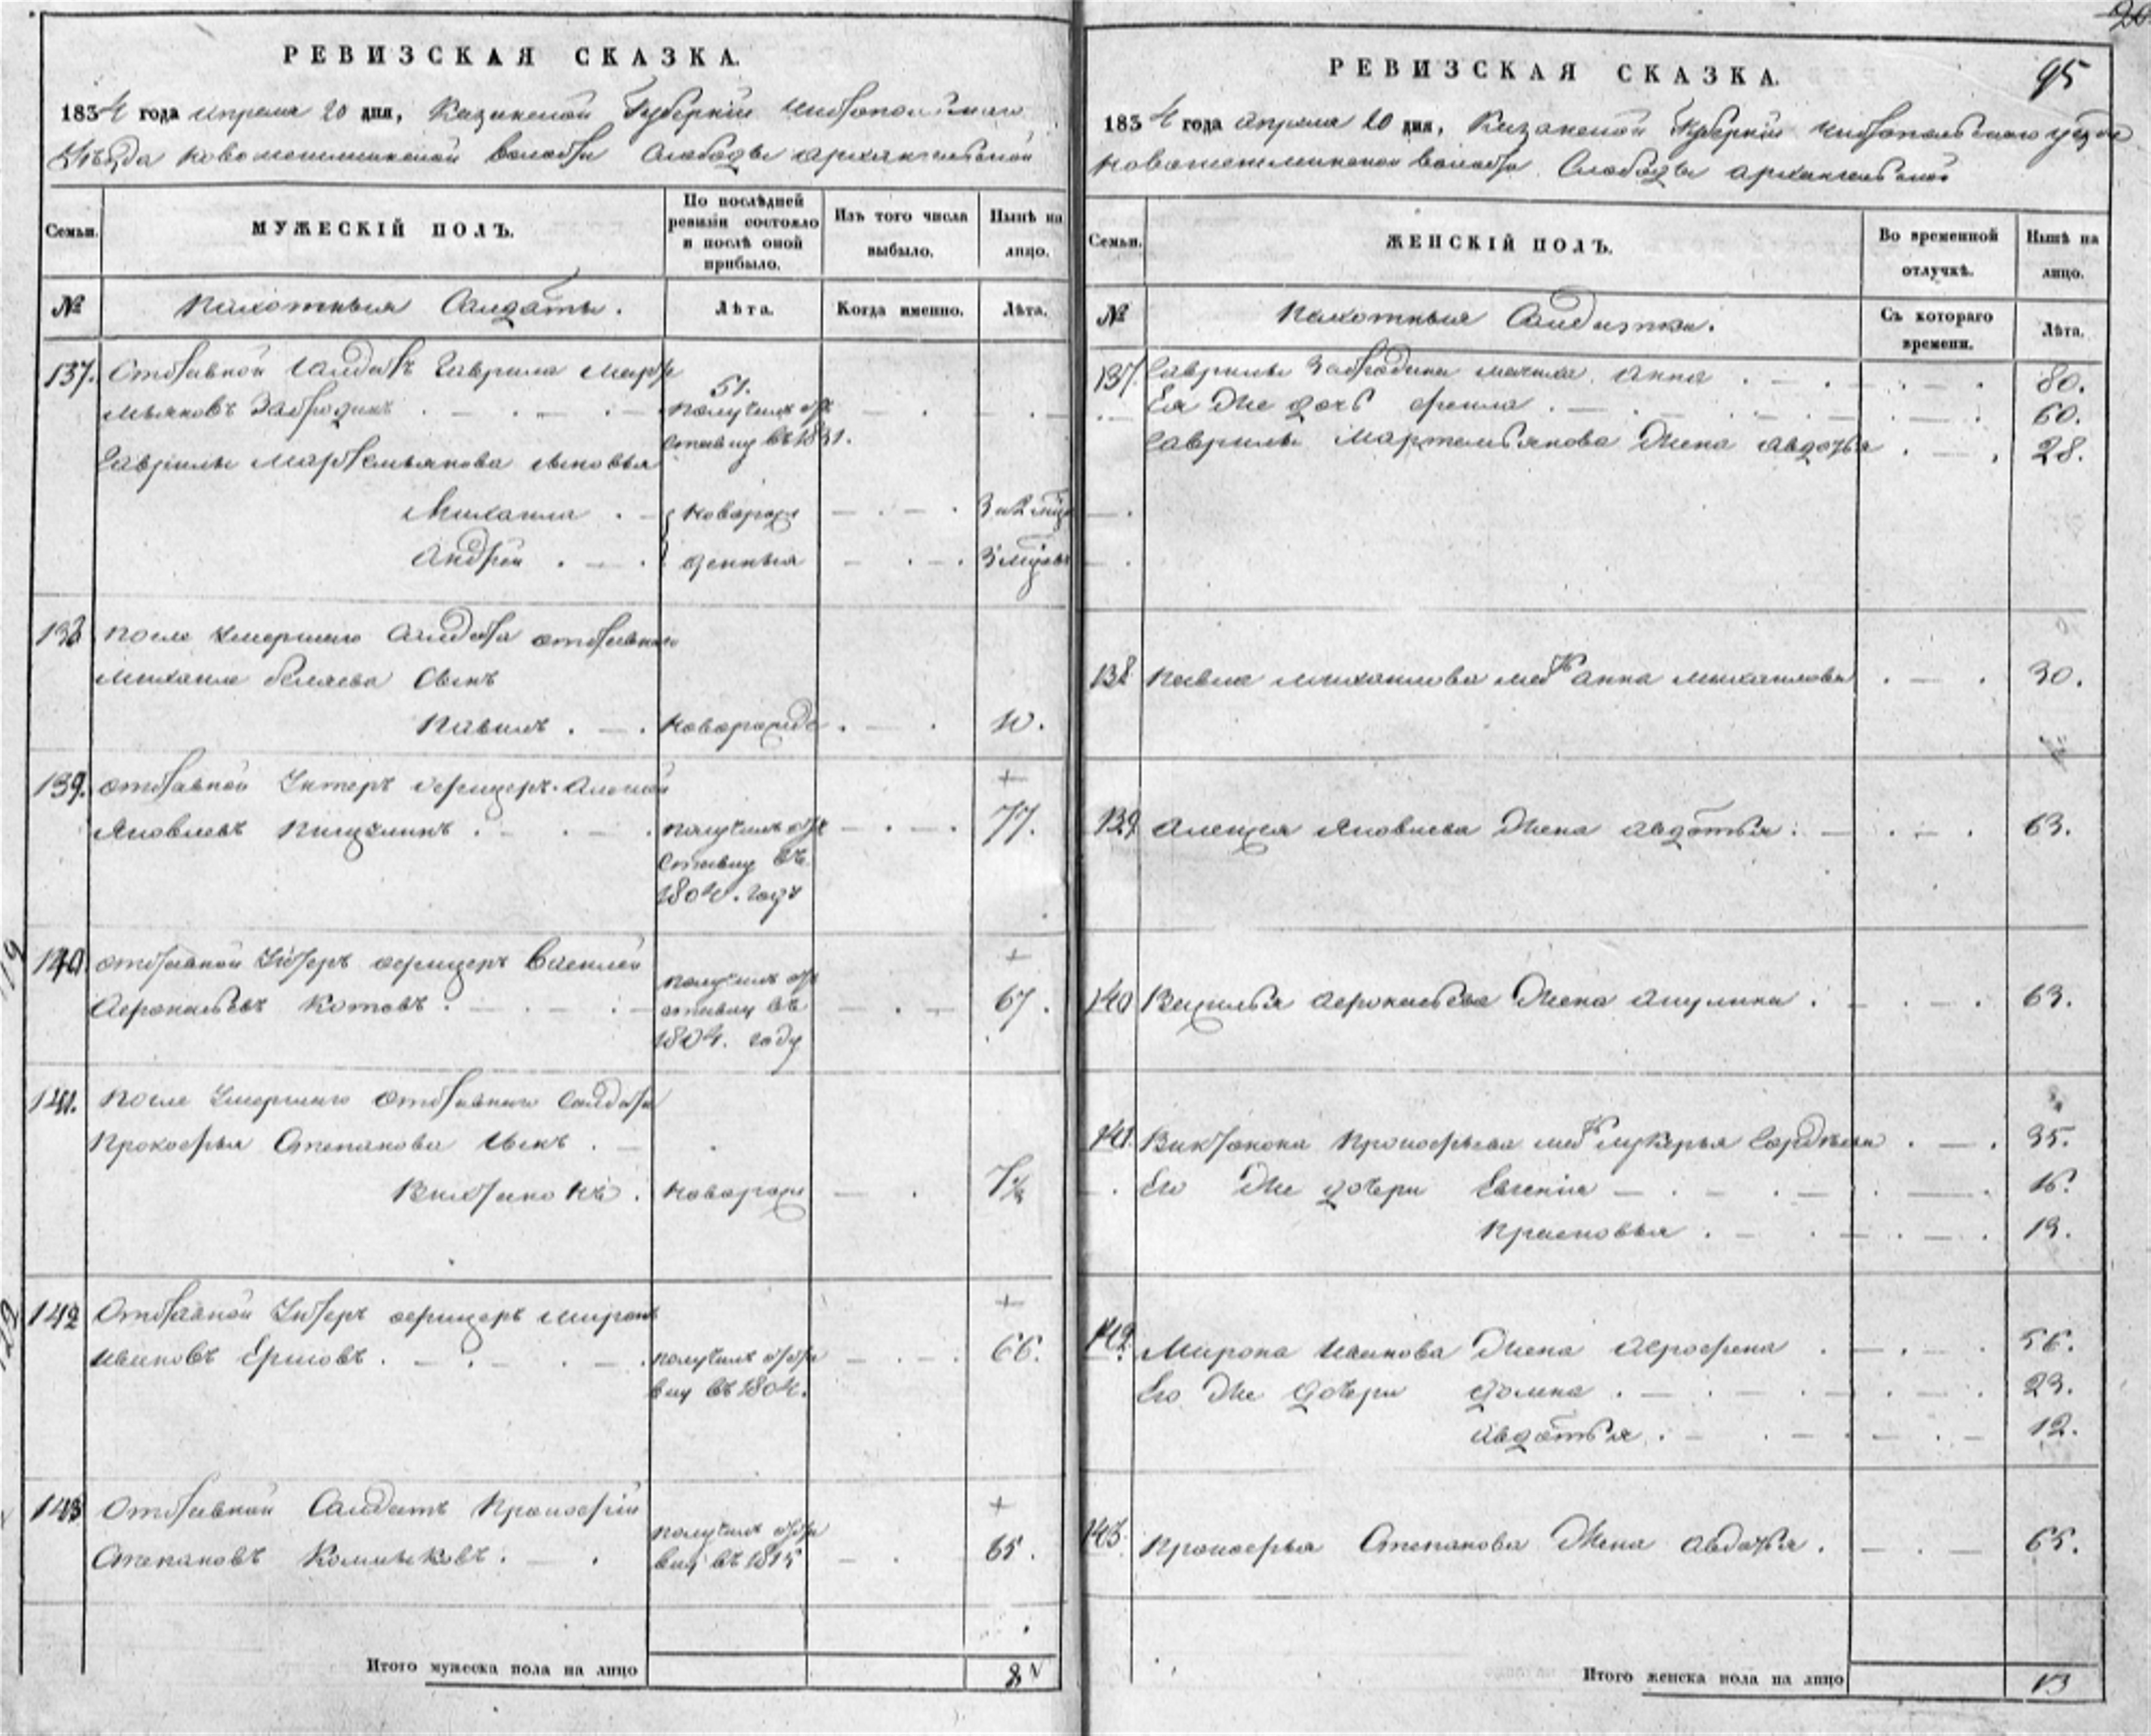 РЕВИЗСКАЯ СКАЗКА.
1834 года апреля 20 дня, Казанской Губернии Чистопольскаго
Уѣзда Новошешминской волости Слободы архангельской
Семьи.
МУЖЕСКІЙ ПОЛЪ.
По послѣдней ревизіи состояло и послѣ оной прибыло.
Изъ того числа выбыло.
Нынѣ на лицо.
№
Пахотныя Салдаты.
Лѣта.
Когда именно.
Лѣта.
137. Отставной Салдатъ Гаврила Марте
мьяновъ Забродинъ
51.
получилъ от
ставку въ 1831.
Гаврилы Мартемьянова сыновья
Михаила новорож 3 и 2 мца
Андрей денныя 3 мцовъ
138 После Умершаго Салдата отставнаго
Михаила Беляева Сынъ
Павилъ новорожде 10.
139. отставной Унтеръ офицеръ
Яковлевъ
получилъ от
ставку въ
1804. году
+
77.
140. отставной Унтеръ офицеръ Василей
Афонасьевъ Котовъ
получилъ от
ставку въ
1804. году
+
67.
141. После Умершаго отставнаго Салдата
Прокофья Степанова Сынъ
новорож
142 Отставной Унтеръ офицеръ Миронъ
Ивановъ Ершовъ
получилъ отста
вку въ 1804.
+
66.
143 Отставной Салдатъ Прокофій
Степановъ
получилъ отста
вку въ 1815
+
65.
Итого мужеска пола на лицо 8
РЕВИЗСКАЯ СКАЗКА.
95
1834 года апреля 20 дня, Казанской Губернии Чистопольскаго уезда
Новошешминской волости Слободы архангельской
Семьи.
ЖЕНСКІЙ ПОЛЪ.
Во временной отлучкѣ.
Нынѣ на лицо.
№
Пахотныя Салдатки.
Съ котораго времени.
Лѣта.
137. Гаврилы Забродина мачиха Анна 80.
Ея Же дочь 60.
Гаврилы Мартемьянова Жена авдотья 28.
138 Павила Михаилова мать Анна Михаилова 30.
139 Алексея Яковлева Жена авдотья 63.
140 Василья Афонасьева Жена акулина 63.
141. Прокофьева мать Лукерья 35.
Его Же дочери Евгенiя 16.
Прасковья 13.
142. Мирона Иванова Жена Афросена 56.
Его Же дочери Домна 23.
авдотья 12.
143. Прокофья Степанова Жена авдотья 65.
Итого женска пола на лицо 13